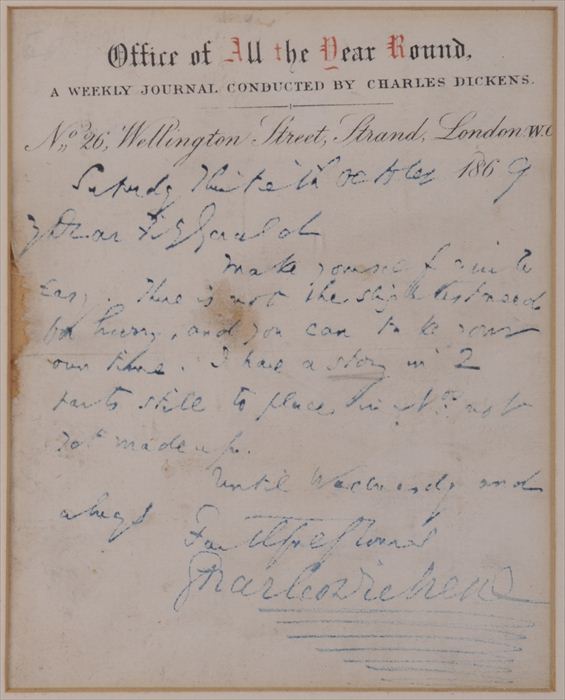 Office of All the Year Round,
A WEEKLY JOURNAL CONDUCTED BY CHARLES DICKENS.
No. 26, Wellington Street, Strand, London. W.C
Saturday Thirtieth October 1869
My Dear Fitzgerald
Make yourself quite
easy. There is not the slightest need
for hurry, and you can take your
own time. I have a story in 2
parts still to place, in Nos. not
yet made up.
Until Wednesday and
always
Faithfully Yours
Charles Dickens